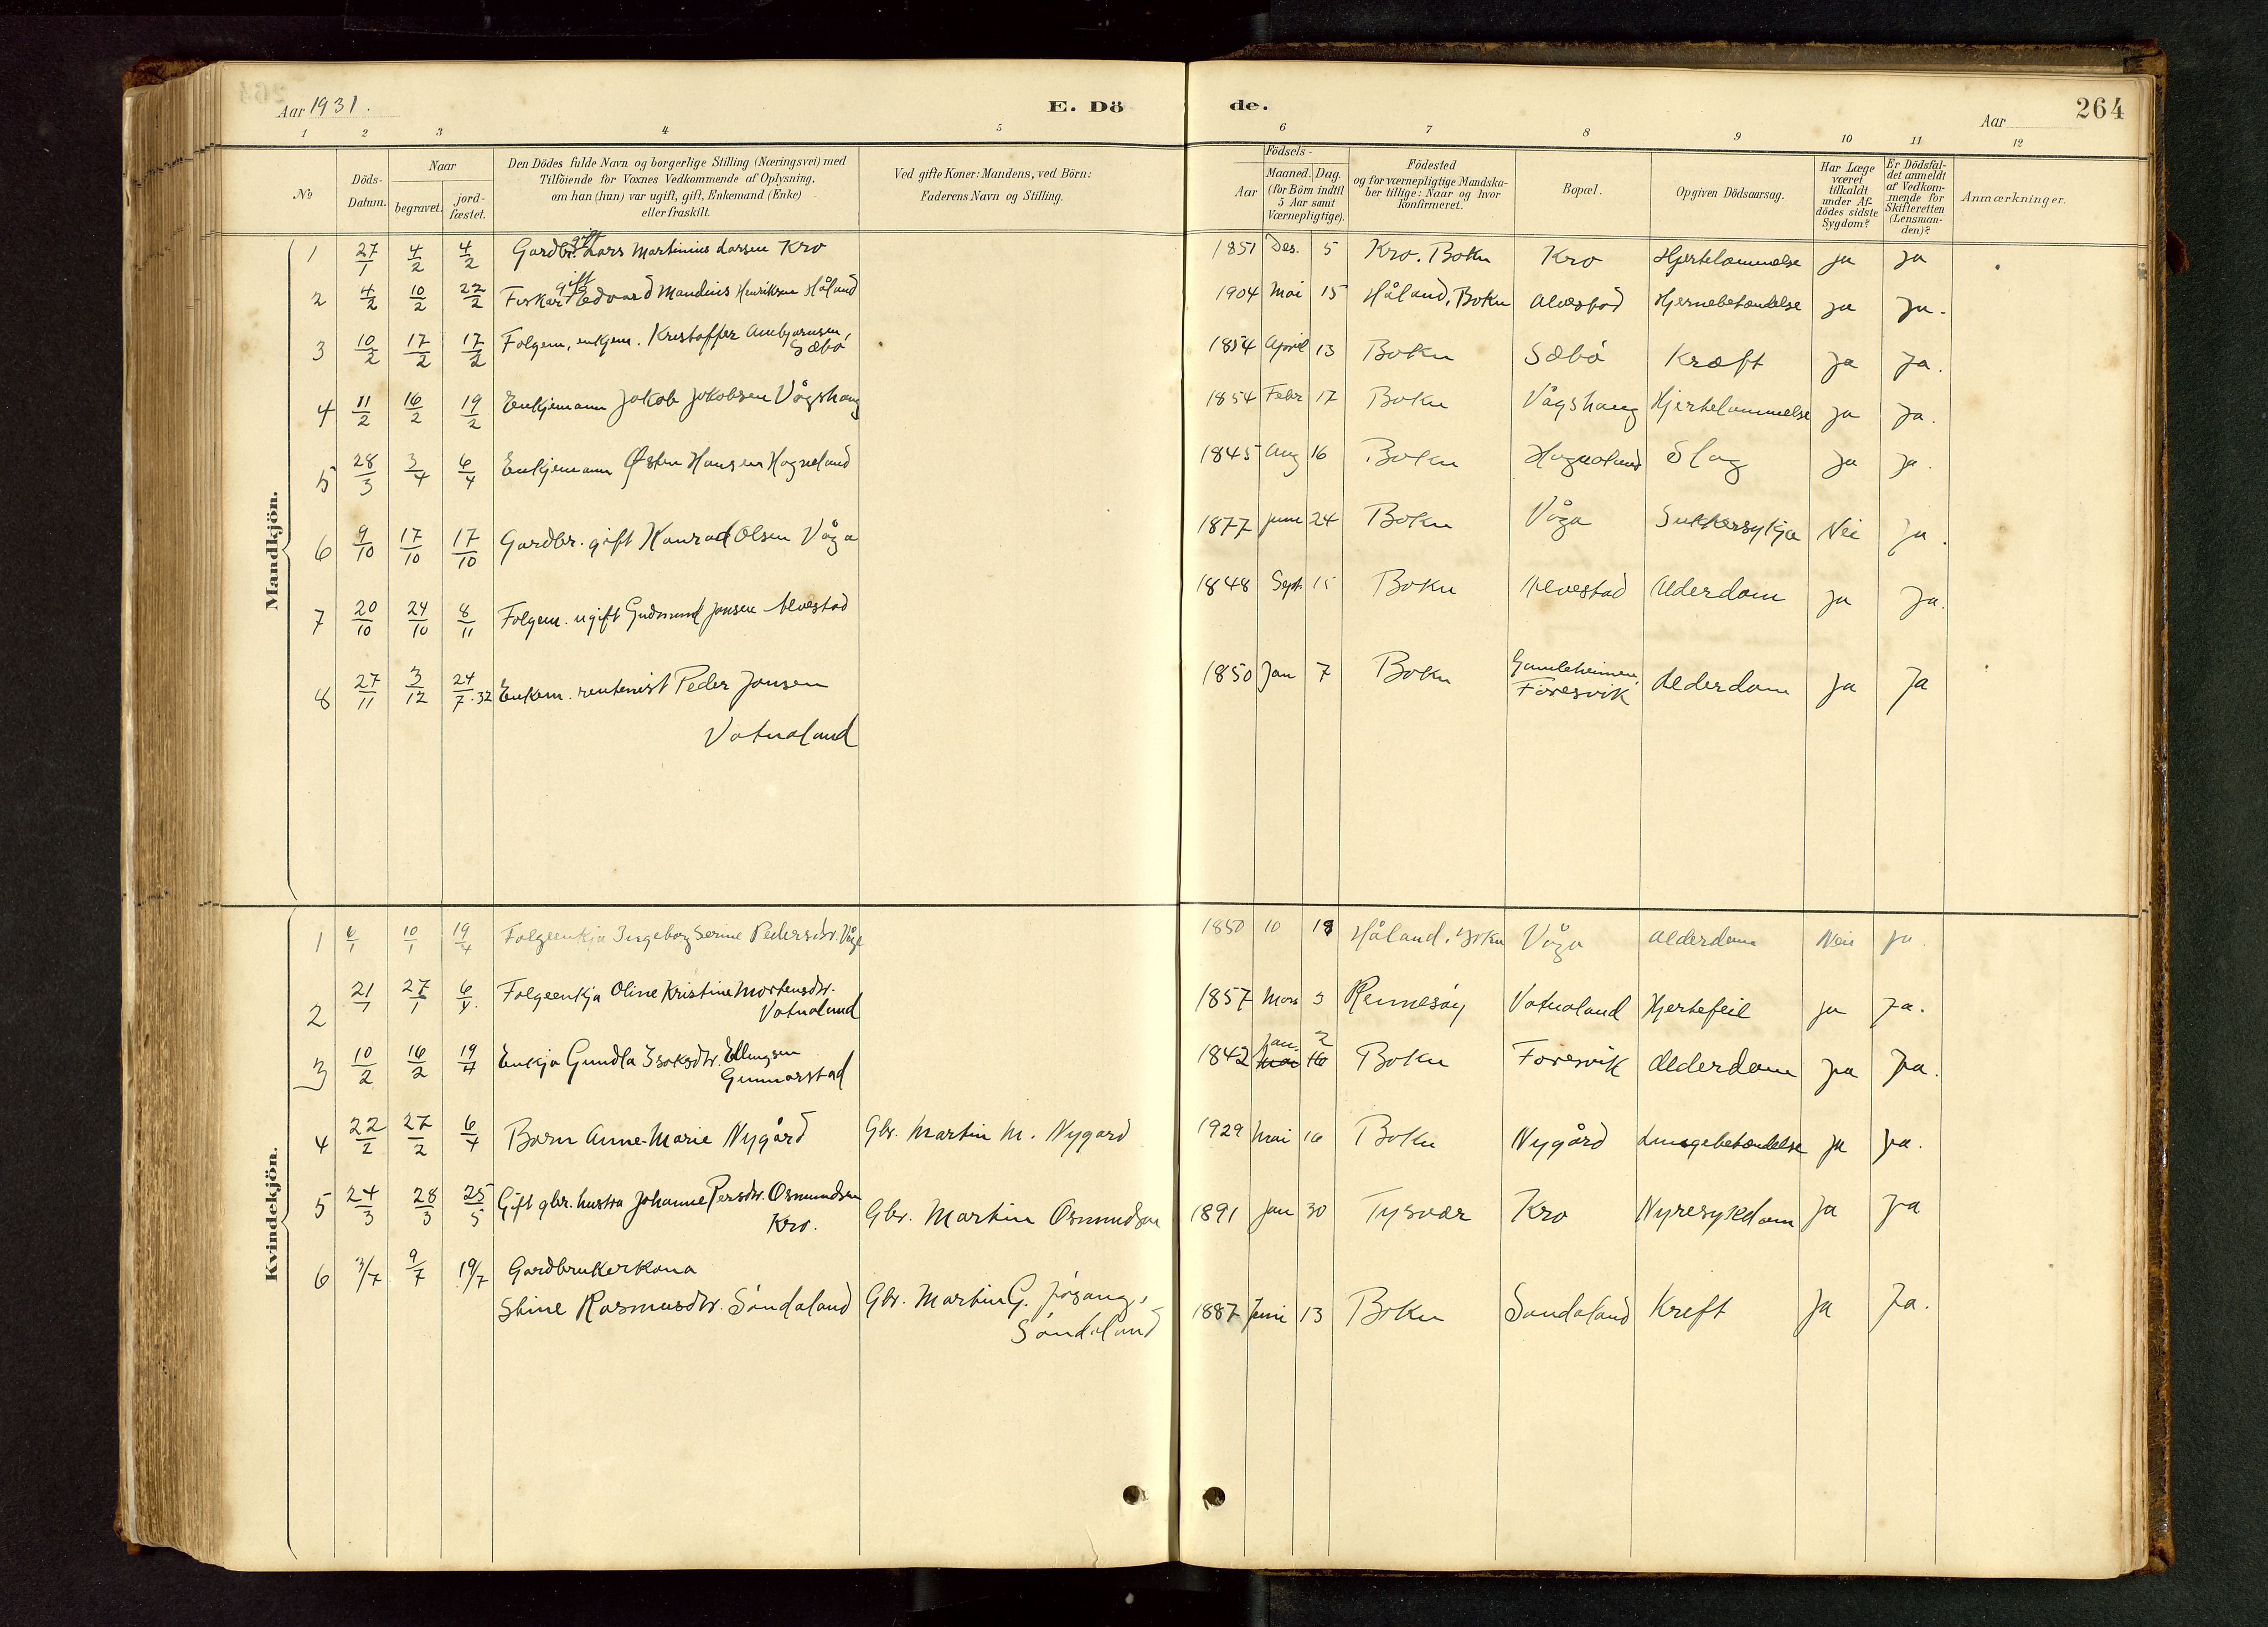 Aar 1931.
E. Dö
de.
Aar
264
1 2 3 4 5 6 7 8 9 10 11 12
No
Döds-Datum.
Naar
begravet.
jord-fæstet.
Den Dödes fulde Navn og borgerlige Stilling (Næringsvei) med
Tilföiende for Voxnes Vedkommende af Oplysning,
om han (hun) var ugift, gift, Enkemand (Enke)
eller fraskilt.
Ved gifte Koner: Mandens, ved Börn:
Faderens Navn og Stilling.
Födsels-
Aar
Maaned. Dag.
(for Börn indtil
5 Aar samt
Værnepligtige).
Födested
og for værnepligtige Mandska-
ber tillige: Naar og hvor
konfirmeret.
Bopæl.
Opgiven Dödsaarsag.
Har Læge
været
tilkaldt
under Af-
dödes sidste
Sygdom?
Er Dödsfal-
det anmeldt
af Vedkom-
mende for
Skifteretten
(Lensman-
den)?
Anmærkninger.
Mandkjön.
1 27/1 4/2 4/2 Gardbr. gift Lars Martinius Larsen Kro 1851 Des. 5 Kro. Bokn Kro Hjertelammelse ja ja
2 4/2 10/2 22/2 Fiskar gift Edvard Mandius Henriksen Håland 1904 Mai 15 Håland, Bokn Alvestad Hjernebetendelse ja ja.
3 10/2 17/2 17/2 Folgem, enkjem. Kristoffer Ambjørnsen,
Sæbø 1854 April 13 Bokn Sæbø Kræft Ja Ja.
4 11/2 16/2 19/2 Enkjemann Jakob Jakobsen Vågshaug 1854 Febr 17 Bokn Vågshaug Hjertelammelse ja Ja.
5 28/3 3/4 6/4 Enkjemann Østen Hansen Hognaland 1845 Aug 16 Bokn Hognaland Slag Ja Ja.
6 9/10 17/10 17/10 Gardbr. gift Konrad Olsen Våga 1877 juni 24 Bokn Våga Sukkersykja Nei Ja.
7 20/10 24/10 8/11 Folgem. ugift Gudmund Jonsen Alvestad 1848 Sept. 15 Bokn Alvestad Alderdom ja Ja.
8 27/11 3/12 24/7.32 Enkem. rentenist Peder Jonsen
Vatnaland 1850 Jan 7 Bokn Gamleheimen, Føresvik Alderdom ja Ja
Kvindekjön.
1 6/1 10/1 19/4 Folgeenkja Ingeborg Serine Pedersdtr. Våge 1850 10 19 Håland, Bokn Våga Alderdom Nei ja.
2 21/1 27/1 6/4. Folgeenkja Oline Kristine Mortensdtr.
Vatnaland 1857 Mars 3 Rennesøy Vatnaland Hjertefeil ja Ja.
3 10/2 16/2 19/4 Enkja Gundla Isaksdtr. Ellingsen
Gunnarstad 1842 Jan. mai 2 16 Bokn Føresvik Alderdom ja Ja.
4 22/2 27/2 6/4 Barn Anne-Marie Nygård Gbr. Martin M. Nygård 1929 Mai 16 Bokn Nygård Lungebetendelse ja ja.
5 24/3 28/3 25/5 Gift gbr. hustru Johanne Persdtr. Osmundsen
Kro. Gbr. Martin Osmundsen 1891 Jan 30 Tysvær Kro Nyresykdom Ja Ja
6 3/7 9/7 19/7 Gardbrukerkona
Stine Rasmusdtr. Søndaland Gbr. Martin G. Jøsang,
Søndaland 1887 Juni 13 Bokn Søndaland Kreft Ja Ja.